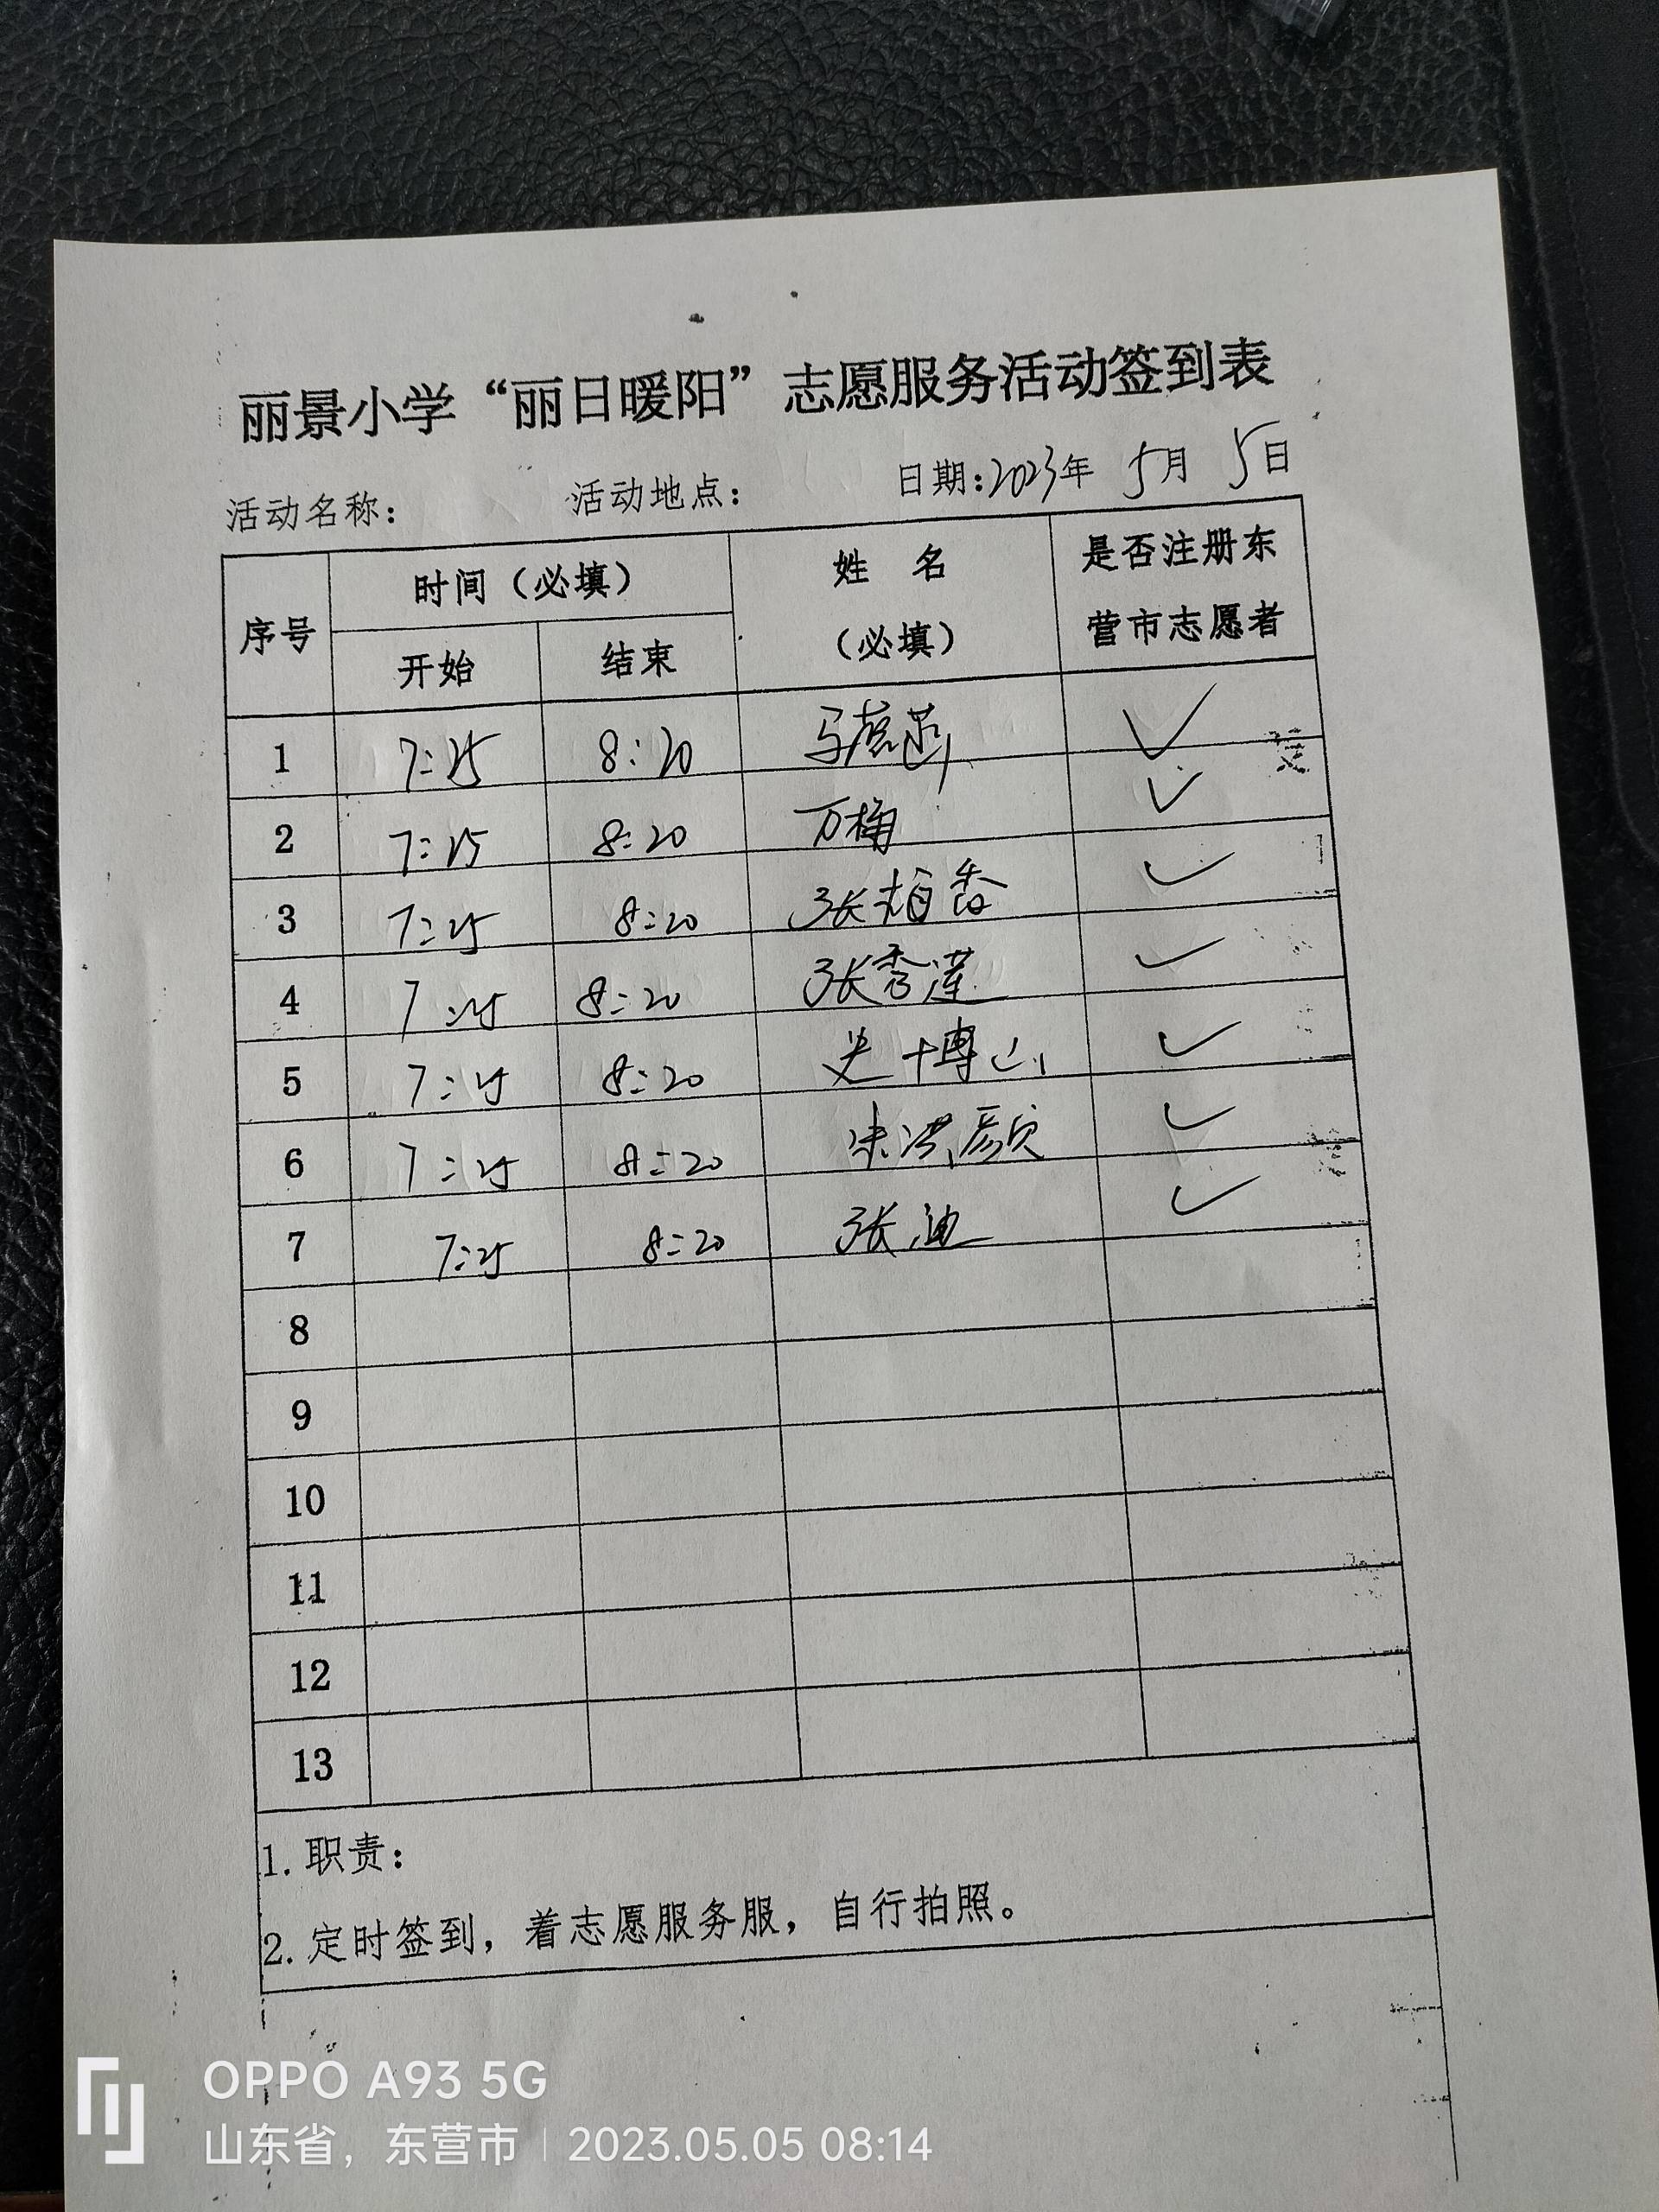 丽景小学“丽日暖阳”志愿服务活动签到表
活动名称： 活动地点： 日期:2023年 5月 5日
序号 时间（必填） 姓 名（必填） 是否注册东营市志愿者
开始 结束
1 7:25 8:20 马 ✓
2 7:25 8:20 万梅 ✓
3 7:25 8:20 张柏香 ✓
4 7:25 8:20 张秀莲 ✓
5 7:25 8:20 史博 ✓
6 7:25 8:20 朱洪颜 ✓
7 7:25 8:20 张迪 ✓
8
9
10
11
12
13
1. 职责：
2. 定时签到，着志愿服务服，自行拍照。
OPPO A93 5G
山东省，东营市 | 2023.05.05 08:14